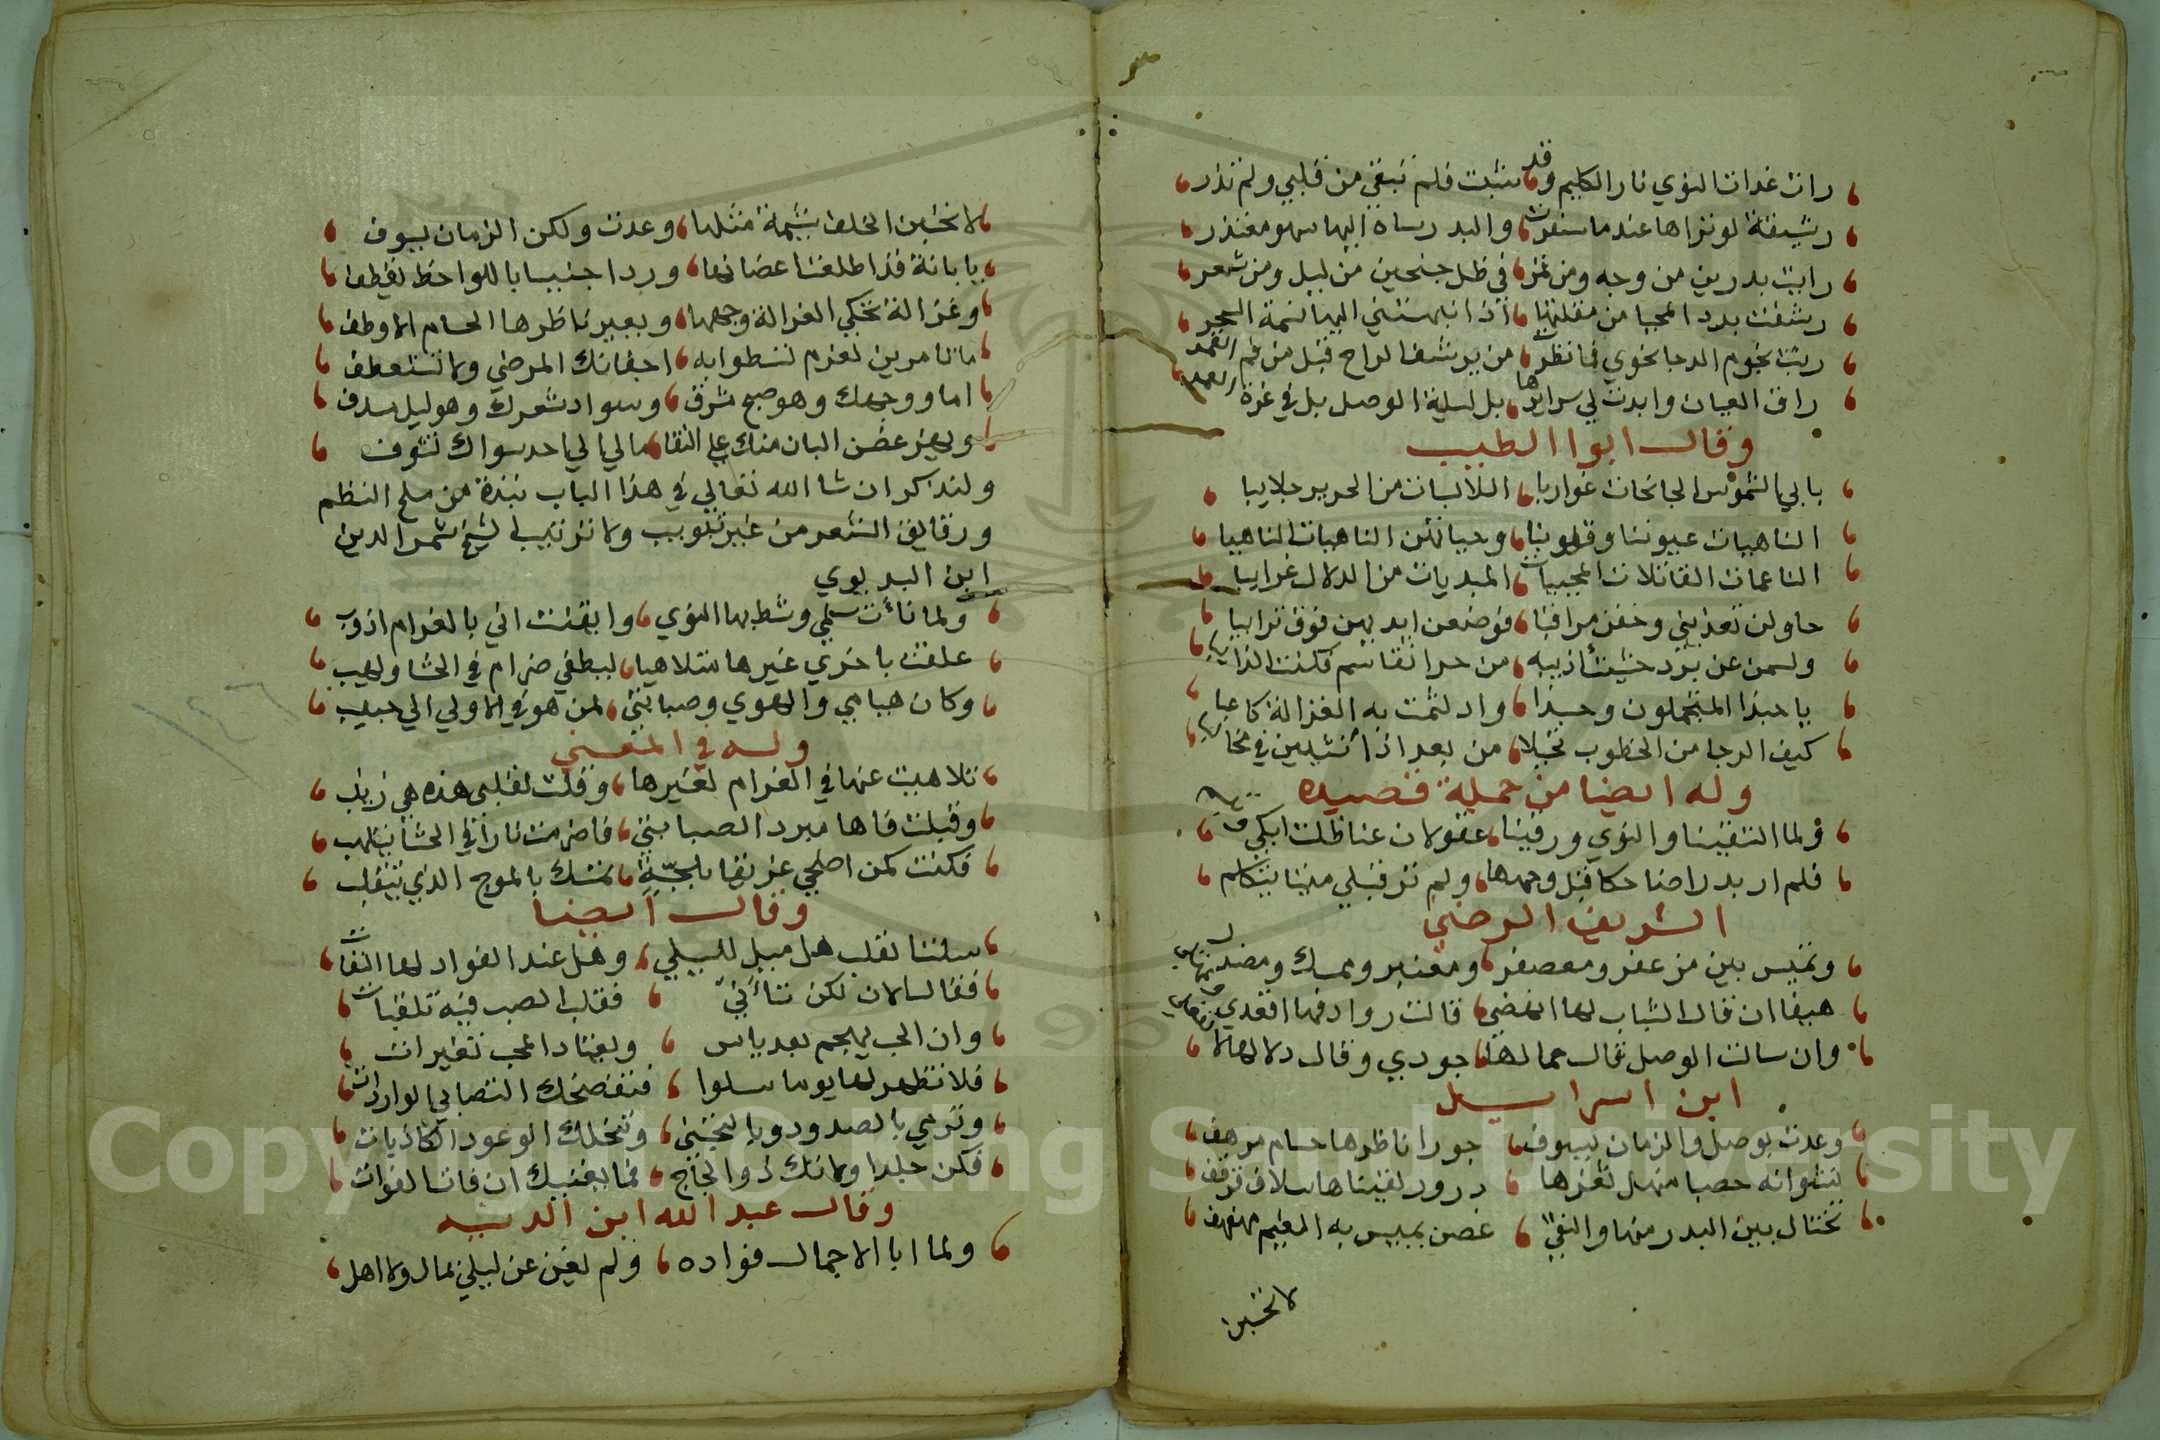 رات غدات النوي نار الكليم وقد، شبت فلم تبقي من قلبي ولم تذر،
رشيقة لو تراها عندما سفرت، والبدر ساه اليها سهو معتذر،
رايت بدرين من وجه ومن قمر، في ظل جنحين من ليل ومن شعر،
رشفت برد المحيا من مقلتها، اذا نبهتني اليها نسمة السحر،
ربت نجوم الدجا نحوي فما نظرت، من يرشف الراح قبل من فم القمر
راق العيان وابدت لي سرايرها، بل ليلة الوصل بل في غرة العمر
وقال ابوا الطيب
بابي الشموس الجانحات غواربا، اللابسات من الحرير جلابيا،
الناهبات عيوننا وقلوبنا، وجناتهن الناهبات الناهبا،
الناعمات القاتلات المحييات، المبديات من الدلال غرايبا،
حاولن تعذيبي وخفن مراقبا، فوضعن ايديهن فوق ترايبا،
وبسمن عن برد خشيت أذيبه، من حر انفاسي فكنت الذايبا،
يا حبذا المتحملون وحبذا، واد لثمت به الغزالة كاعبا،
كيف الرجا من الخطوب تخلا، من بعد اذا أنشبن في مخالبا،
وله ايضا من جملة قصيده
ولما التقينا والنوي ورقيبنا، غفولان عنا ظلت ابكي وتبسم،
فلم ار بدرا ضاحكا قبل وجهها، ولم تر قبلي ميتا يتكلم،
الشريف الرضي
وتميس بين مزعفر ومعصفر، ومعنبر وممسك ومصندل
هيفا ان قال الشباب لها انهضي، قالت روادفها اقعدي وتمهلي
وان سالت الوصل قال جمالها، جودي وقال دلالها لا
ابن اسراييل
وعدت بوصل والزمان يسوف، حورا ناظرها حسام مرهف،
نشوانه حصبا منهل ثغرها، درور لقيتا ها سلاف قرقف،
تختال بين البدر منها والنقي، غصن يميس به النعيم مهفهف،
لا تحسبن
لا تحسبن الخلف شيمة مثلها، وعدت ولكن الزمان يسوف،
يا بانة قد اطلعت اعضانها، وردا جنيا باللواحظ يقطف،
وغزالة تحكي الغزالة وجهها، وبعير ناظرها الحسام الاوطف،
ما تامرين لمغرم تسطوا به، اجفانك المرضي ولا تتعطف،
اما ووجهك وهو صبح مشرق، وسواد شعرك وهو ليل مسدف،
وبهز غصن البان منك علي النقا، مالي الي احد سواك تشوف،
ولنذكر ان شا الله تعالي في هذا الباب نبذة من ملح النظم
ورقايق الشعر من غير تبويب ولا ترتيب لشيخ شمس الدين
ابن البديوي
ولما نأت سلمي وشط بها النوي، وايقنت اني بالغرام اذوب،
علقت باخري غيرها متلاهيا، ليطفي ضرام في الحشا ولهيب،
وكان هيامي والهوي وصبابتي، لمن هو في الاولي الي حبيب،
وله في المعني
تلاهيت عنها في الغرام لغيرها، وقلت لقلبي هذه هي زينب،
وقبلت فاها مبرد الصبابتي، فاضرمت نارا في الحشا تتلهب،
فكنت كمن اضحي غريقا بلجّة، تمسك بالموج الذي يتقلب،
وقال ايضا
سلنتا لقلب هل ميل لليلي، وهل عند الفواد لها التفات،
فقال الان لكن تتأنّي، فقلب الصب فيه تلفتات،
وان الحب يهجم بعد ياس، ويعتاد المحب تغيرات،
فلا تظهر لها يوما سلوا، فتفضحك التصابي الواردات،
وترمي بالصدود وبالتجني، وتنحلك الوعود الكاذبات،
فكن جلدا ولا تك ذو لجاج، فما يعنيك ان فات الفوات،
وقال عبد الله ابن الدمينه
ولما ابا الا جمال فواده، ولم يغن عن ليلي بمال ولا اهل،